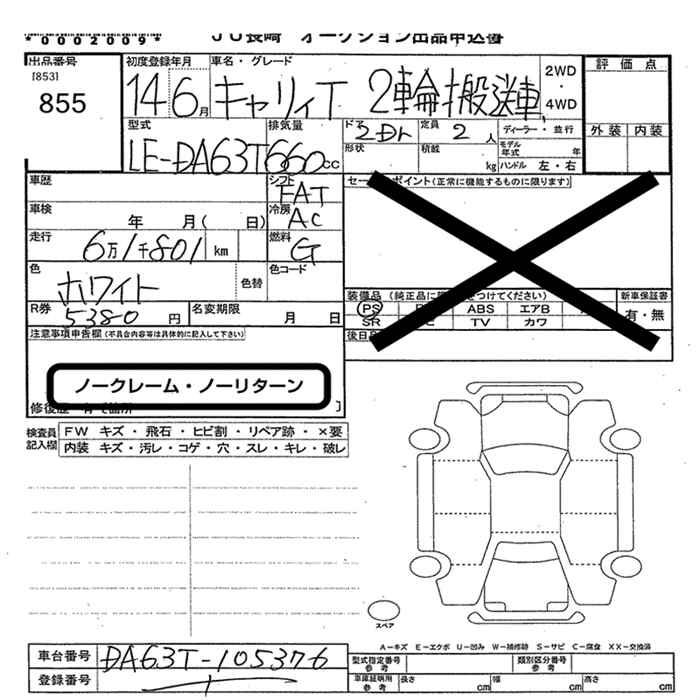 *0002009*
JU長崎 オークション出品申込書
出品番号
[853]
855
初度登録年月
14 6月
車名・グレード
キャリイT 2輪搬送車
2WD
・
4WD
評価点
外装 内装
型式
LE-DA63T
排気量
660cc
ドア
2Dr
形状
定員 2 人
積載 kg
ディーラー・並行
モデル年式 年
ハンドル 左・右
車歴
シフト
FAT
車検
年 月( 日)
冷房
AC
走行
6万1千801 km
燃料
G
色
ホワイト
色替
色コード
R券
5380 円
名変期限
月 日
セールスポイント(正常に機能するものに限ります)
装備品 (純正品に をつけてください)
PS ABS エアB
SR TV カワ
新車保証書
有・無
後日
注意事項申告欄(不具合内容等は具体的に記入して下さい)
ノークレーム・ノーリターン
修復歴
検査員記入欄
FW キズ・飛石・ヒビ割・リペア跡・×要
内装 キズ・汚レ・コゲ・穴・スレ・キレ・破レ
スペア
A-キズ E-エクボ U-凹み W-補修跡 S-サビ C-腐食 XX-交換済
車台番号
DA63T-105376
登録番号
型式指定番号
参考
類別区分番号
参考
車庫証明用
参考
長さ cm
幅 cm
高さ cm